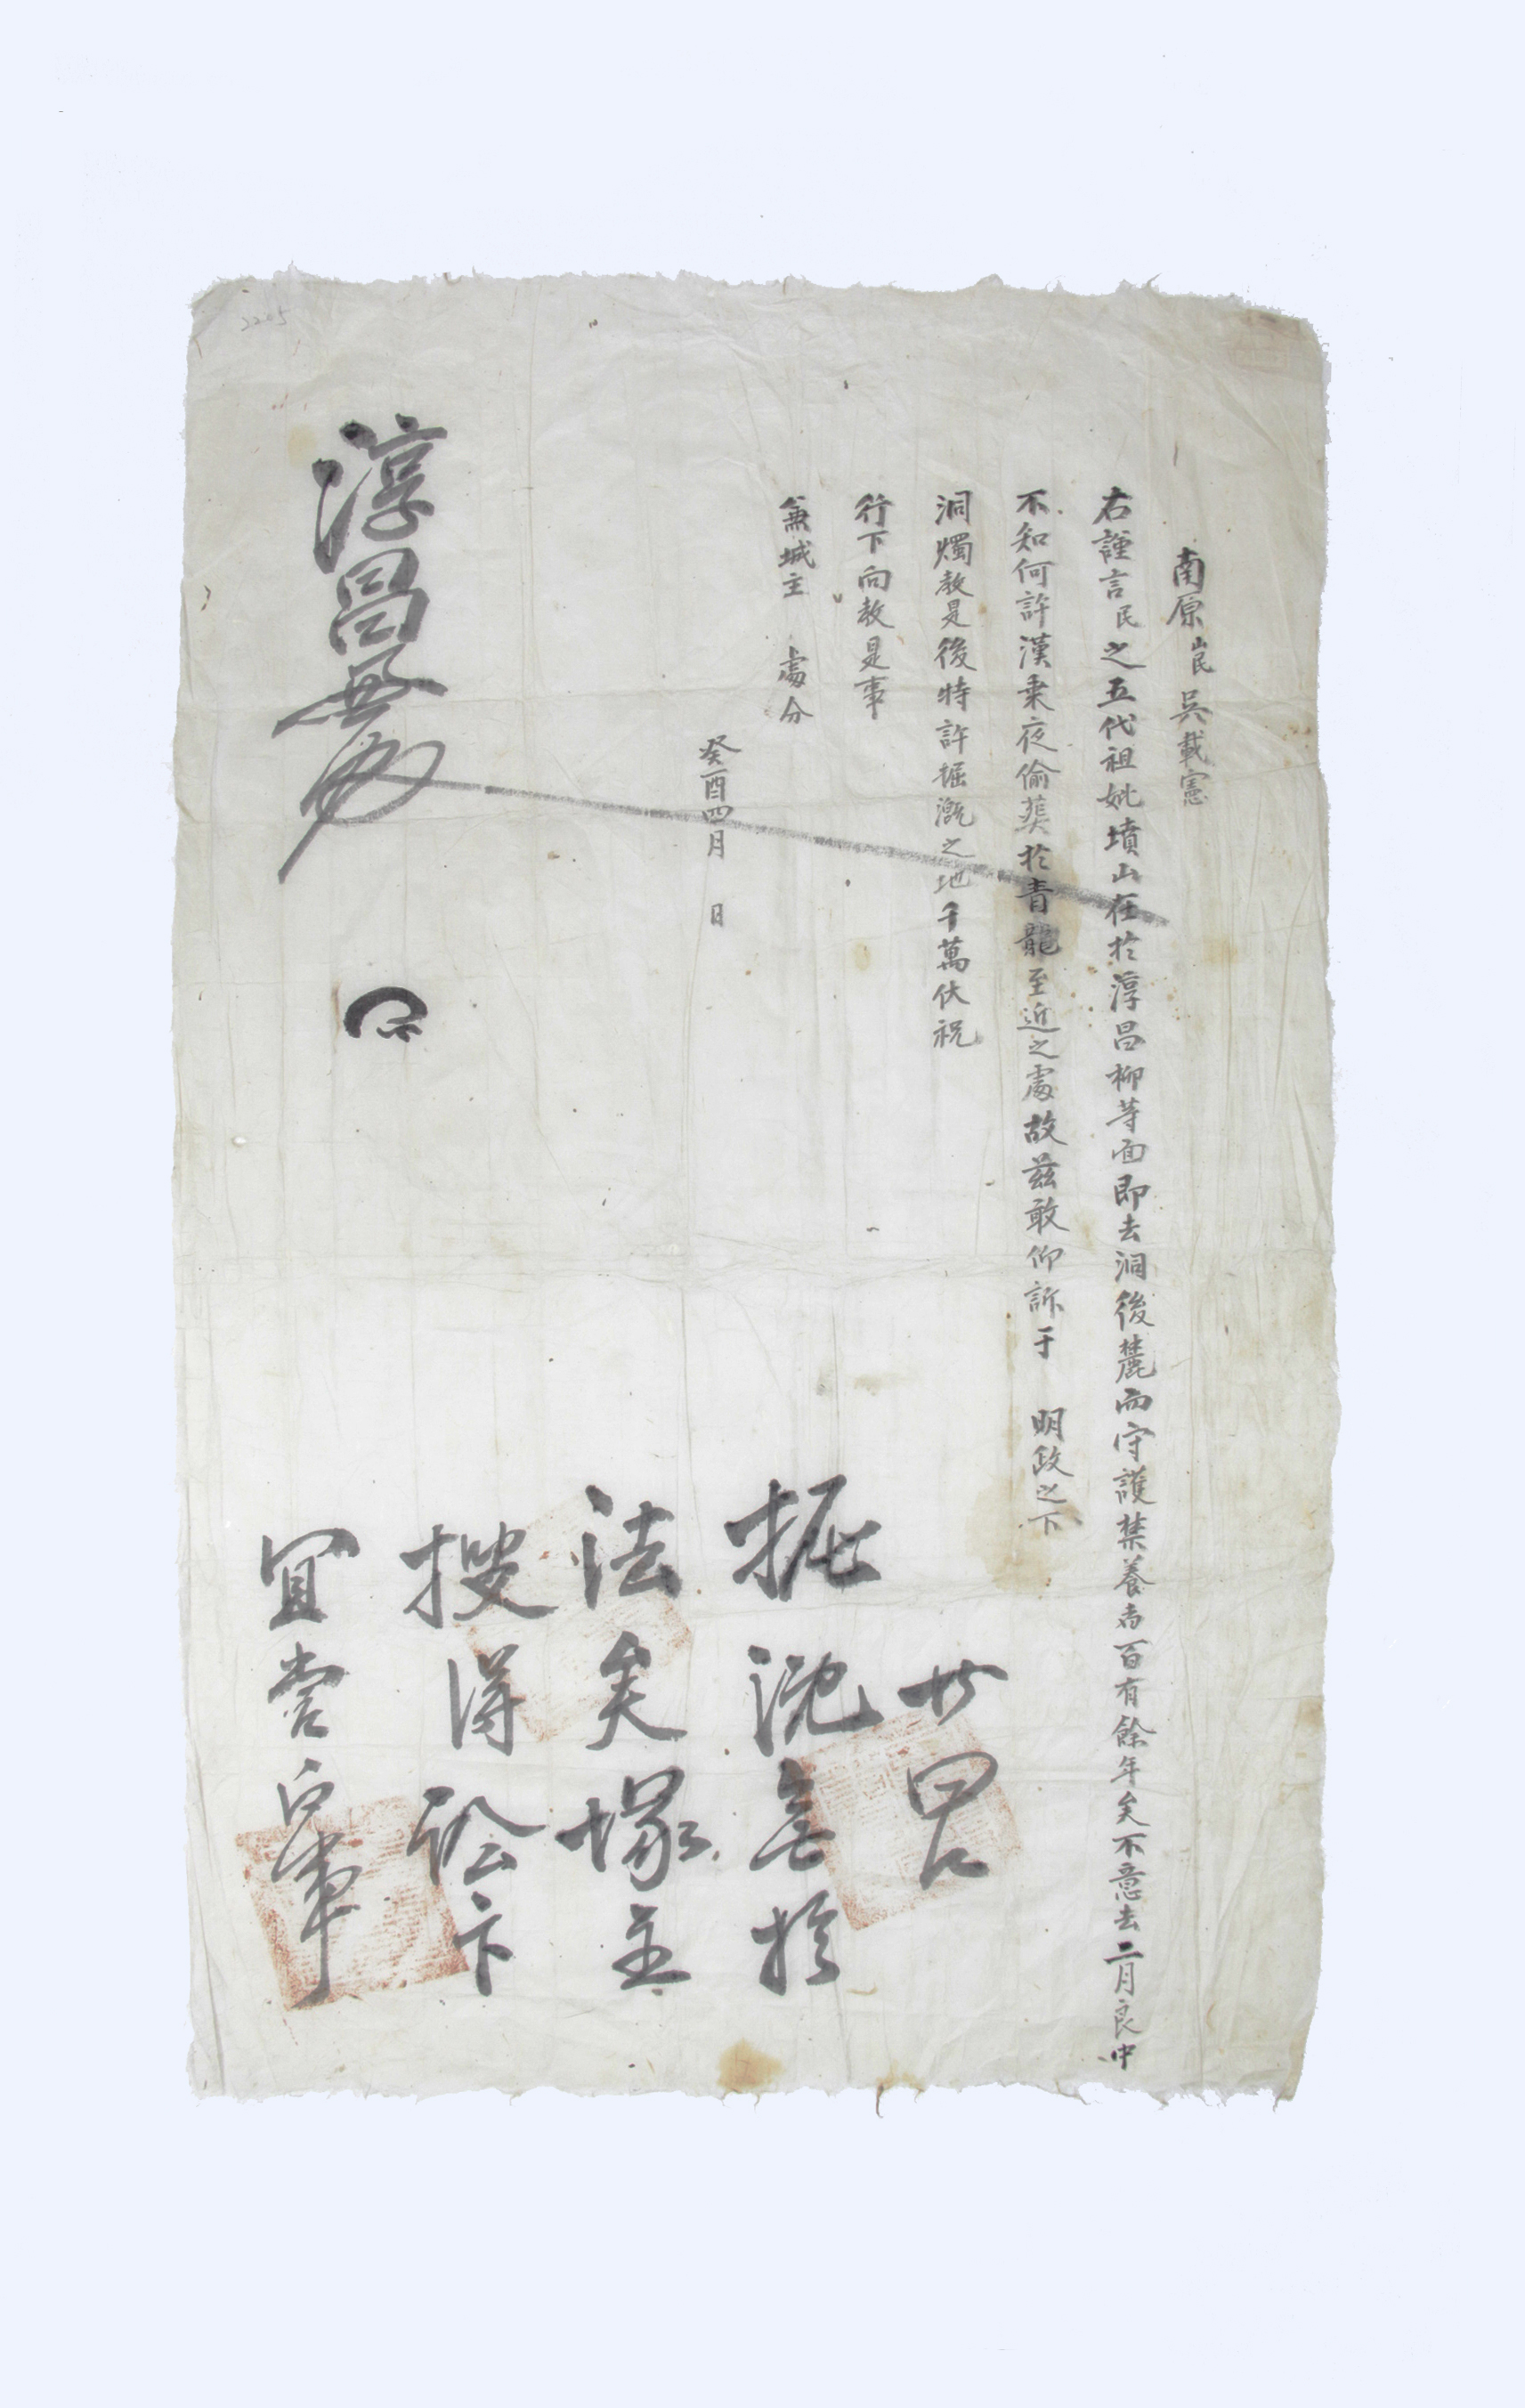 南原居民 吳載憲
右謹言民之五代祖妣墳山在於淳昌柳等面卽去洞後麓而守護禁養爲百有餘年矣不意去二月良中
不知何許漢乘夜偸葬於靑龍至近之處故玆敢仰訴于 明政之下
洞燭敎是後特許掘漑之地千萬伏祝
行下向敎是事
兼城主 處分
癸酉四月 日
淳昌兼
廿四
掘漑無於
法矣塚主
搜得訟卞
宜當向事
2205